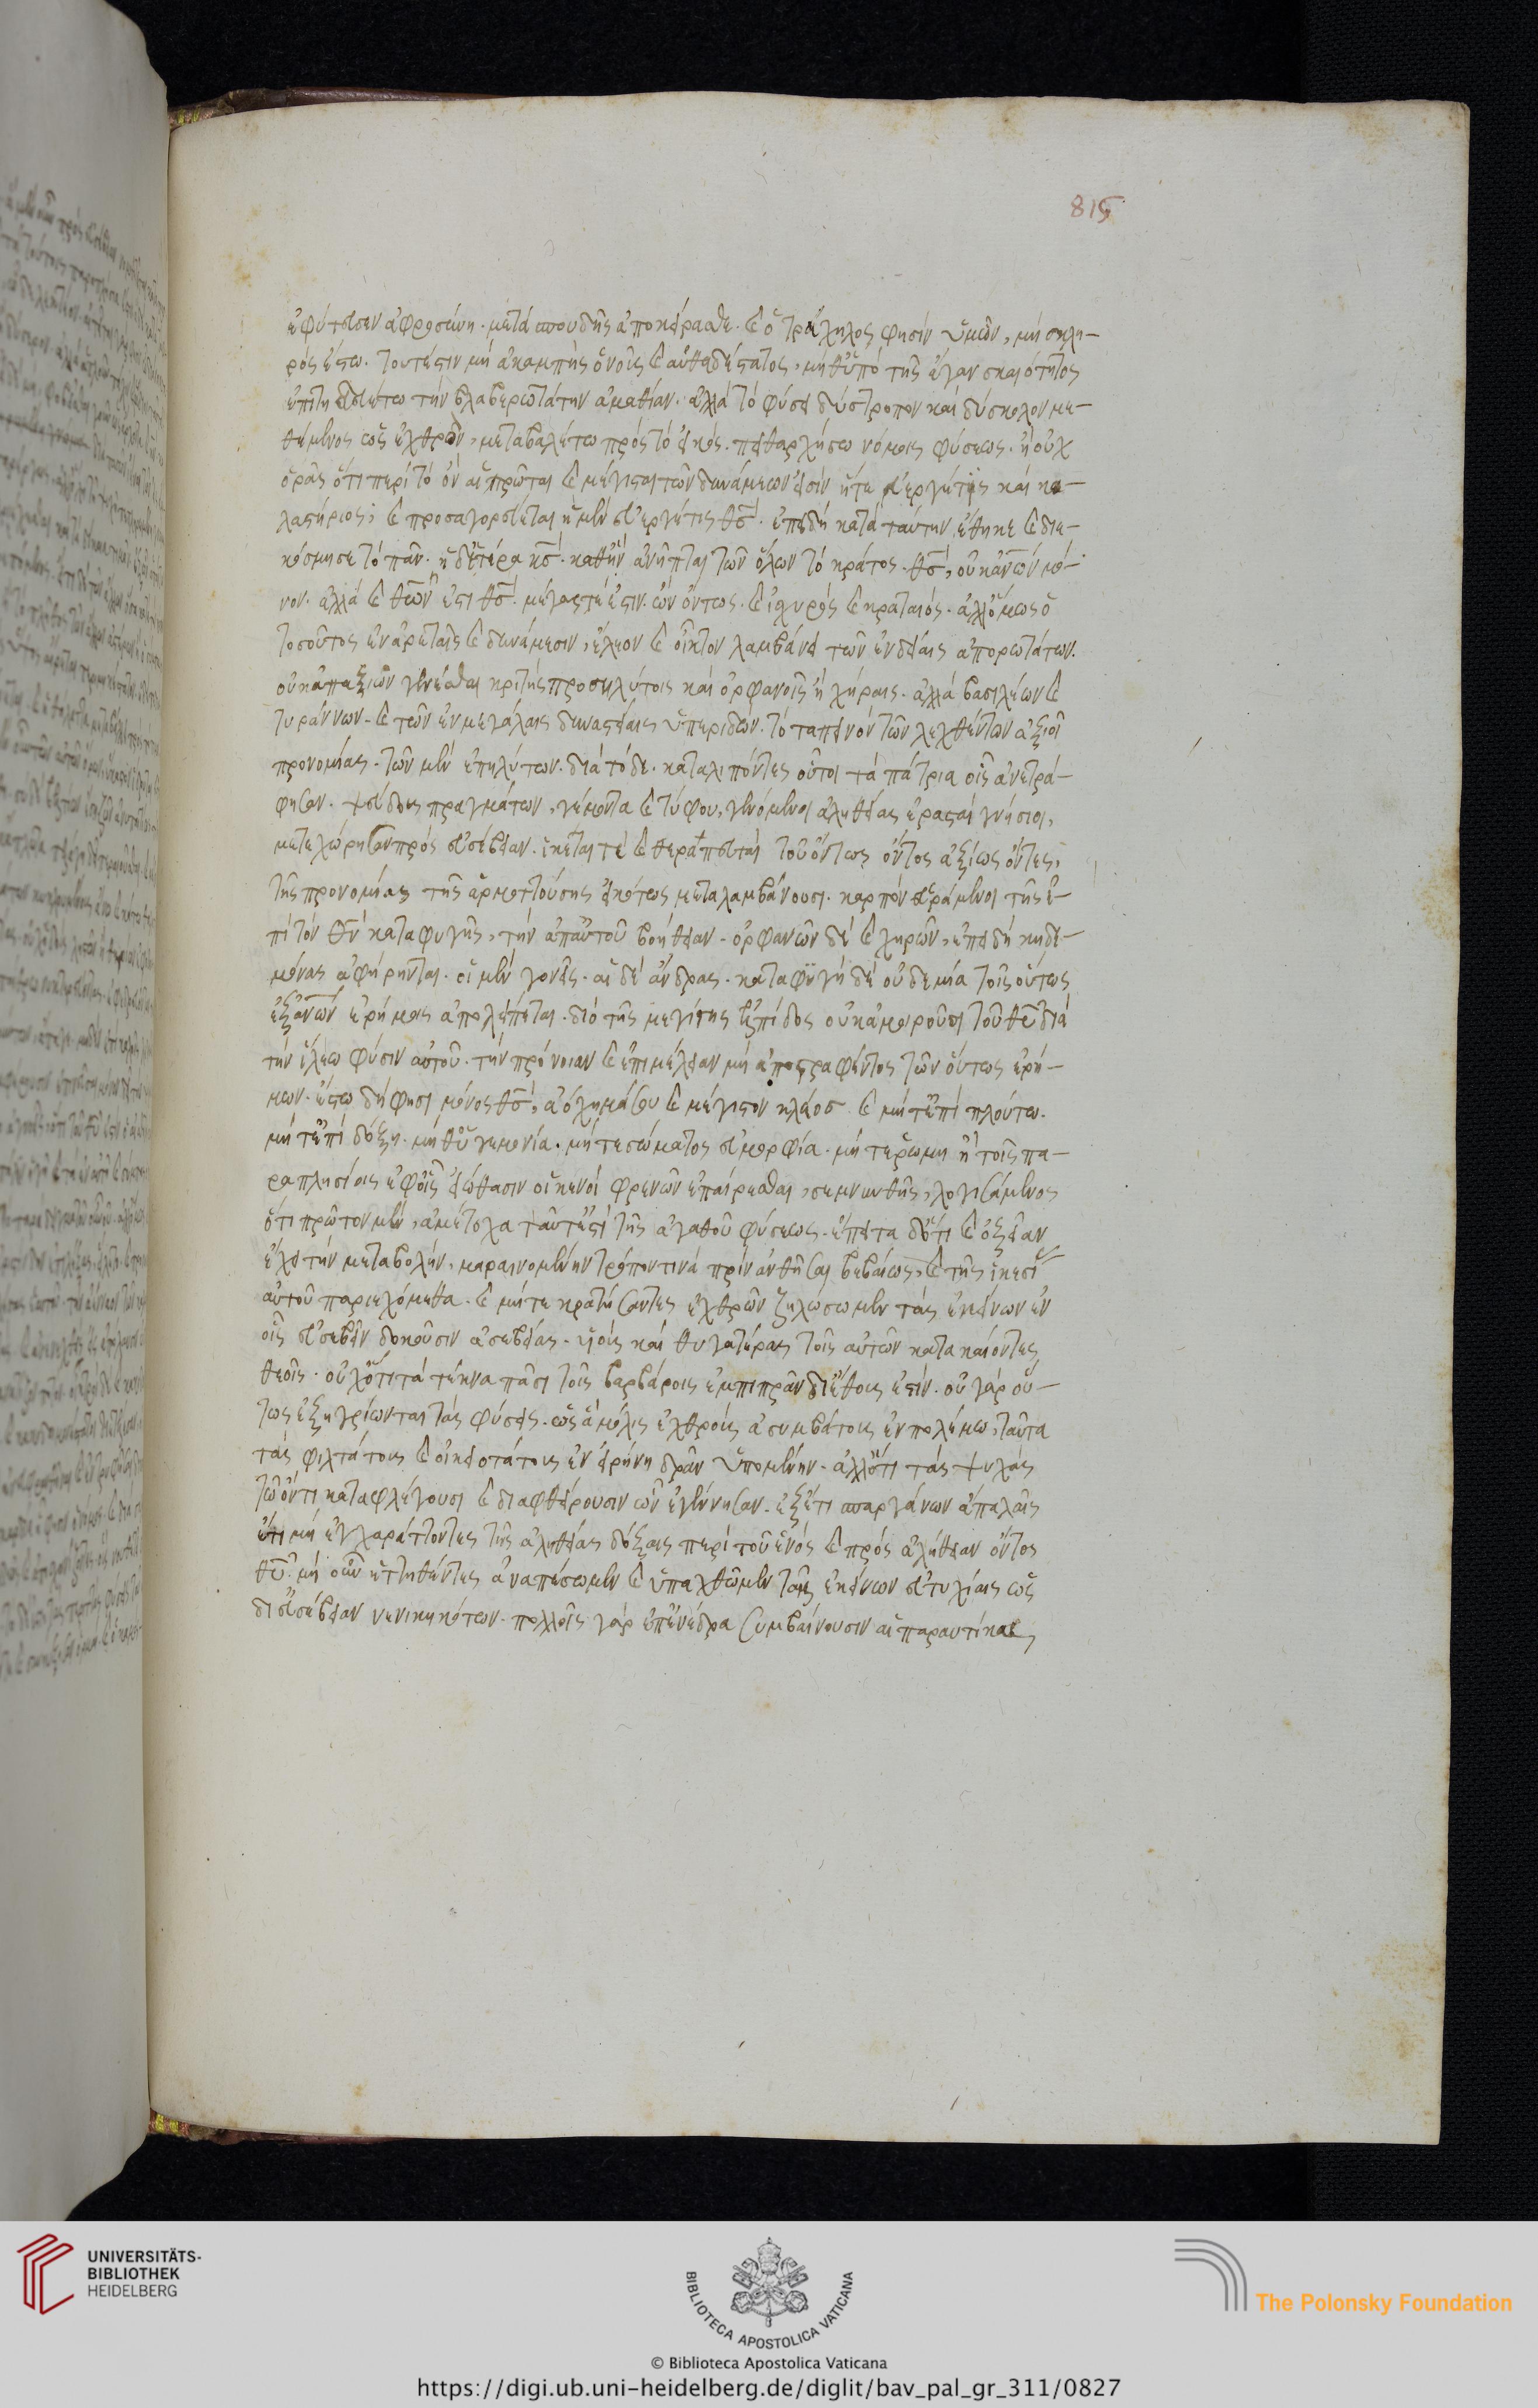 815
ἐφύτευσεν ἀφροσύνη. μετὰ σπουδῆς ἀποκείρασθε. καὶ ὁ τράχηλος φησὶν ὑμῶν, μὴ σκλη-
ρὸς ἔστω. τουτέστιν μὴ ἀκαμπὴς ὁ νοῦς καὶ αὐθαδέστατος, μηθ' ὑπὸ τῆς ἄγαν σκαιότητος
ἐπιτηδευέτω τὴν βλαβερωτάτην ἀμαθίαν. ἀλλὰ τὸ φύσει δύστροπον καὶ δύσκολον με-
θέμενος ὡς ἐχθρὸν, μεταβαλέτω πρὸς τὸ εἰκός. πειθαρχήσω νόμοις φύσεως. ἢ οὐχ
ὁρᾷς ὅτι περὶ τὸ ὂν αἱ πρῶται καὶ μέγισται τῶν δυνάμεων εἰσὶν ἥτε εὐεργέτις καὶ κο-
λαστήριος; καὶ προσαγορεύεται ἡ μὲν εὐεργέτις θσ. ἐπειδὴ κατὰ ταύτην ἔθηκε καὶ διε-
κόσμησε τὸ πᾶν. ἡ δ' ἑτέρα κσ. καθ' ἣν ἀνῆπται τῶν ὅλων τὸ κράτος. θσ, οὐκ ἀνων μό-
νον. ἀλλὰ καὶ θεῶν ἐστι θσ. μέγας τέ ἐστιν. ὢν ὄντως. καὶ ἰσχυρὸς καὶ κραταιός. ἀλλ' ὅμως ὁ
τοσοῦτος ἐν ἀρεταῖς καὶ δυνάμεσιν, ἔλεον καὶ οἶκτον λαμβάνει τῶν ἐν ἐνδείαις ἀπορωτάτων.
οὐκ ἀπαξιῶν γενέσθαι κριτὴς προσηλύτοις καὶ ὀρφανοῖς ἢ χήραις. ἀλλὰ βασιλέων καὶ
τυράννων. καὶ τῶν ἐν μεγάλαις δυναστείαις ὑπεριδὼν. τὸ ταπεινὸν τῶν λεχθέντων ἀξιοῖ
προνομίας. τῶν μὲν ἐπηλύτων. διὰ τόδε. καταλιπόντες οὗτοι τὰ πάτρια οἷς ἀνετρά-
φησαν. ψεύδους πραγμάτων, γέμοντα καὶ τύφου, γενόμενοι ἀληθείας ἐρασταὶ γνήσιοι,
μετεχώρησαν πρὸς εὐσέβειαν. ἱκέται τὲ καὶ θεραπευταὶ τοῦ ὄντως ὄντος ἀξίως ὄντες,
τῆς προνομίας τῆς ἁρμοττούσης εἰκότως μεταλαμβάνουσι. καρπὸν εὑράμενοι τῆς ἐ-
πὶ τὸν θν καταφυγῆς, τὴν ἀπ' αὐτοῦ βοήθειαν. ὀρφανῶν δὲ καὶ χηρῶν, ἐπειδὴ κηδε-
μόνας ἀφήρηνται. οἱ μὲν γονεῖς. αἱ δὲ ἄνδρας. καταφυγὴ δὲ οὐδεμία τοῖς οὕτως
ἐξ ἀνων ἐρήμοις ἀπολείπεται. διὸ τῆς μεγίστης ἐλπίδος οὐκ ἀμοιροῦσι τοῦ θυ διὰ
τὴν ἵλεω φύσιν αὐτοῦ. τὴν πρόνοιαν καὶ ἐπιμέλειαν μὴ ἀποστραφέντος τῶν οὕτως ἐρή-
μων. ἔστω δή φησι μόνος θσ, αὔχημά σου καὶ μέγιστον κλέος. καὶ μήτ' ἐπὶ πλούτω.
μήτ' ἐπὶ δόξη. μήθ' ἡγεμονία. μήτε σώματος εὐμορφία. μήτε ῥώμη ἢ τοῖς πα-
ραπλησίοις ἐφ' οἷς εἰώθασιν οἱ κενοὶ φρενῶν ἐπαίρεσθαι, σεμνυνθῆς, λογισάμενος
ὅτι πρῶτον μὲν, ἀμέτοχα ταῦτ' ἐστὶ τῆς ἀγαθοῦ φύσεως. ἔπειτα δ' ὅτι καὶ ὀξεῖαν
ἔχει τὴν μεταβολὴν, μαραινομένην τρόπον τινὰ πρὶν ἀνθῆσαι βεβαίως, καὶ τῆς ἱκεσί
αὐτοῦ περιεχόμεθα. καὶ μήτε κρατήσαντες ἐχθρῶν ζηλώσωμεν τὰς ἐκείνων ἐν
οἷς εὐσεβεῖν δοκοῦσιν ἀσεβείας. υἱοὺς καὶ θυγατέρας τοῖς αὐτῶν κατακαίοντες
θεοῖς. οὐχ ὅτι τὰ τέκνα πᾶσι τοῖς βαρβάροις ἐμπιπρᾶν δι' ἔθους ἐστίν. οὐ γὰρ οὕ-
τως ἐξηγρίωνται τὰς φύσεις. ὡς ἃ μόλις ἐχθροὺς ἀσυμβάτους ἐν πολέμω, ταῦτα
τοὺς φιλτάτους καὶ οἰκειοτάτους ἐν εἰρήνη δρᾶν ὑπομένειν. ἀλλ' ὅτι τὰς ψυχὰς
τῶ ὄντι καταφλέγουσι καὶ διαφθείρουσιν ὧν ἐγέννησαν. ἐξέτι σπαργάνων ἁπαλαῖς
ἔτι μὴ ἐγχαράττοντες τῆς ἀληθείας δόξας περὶ τοῦ ἑνὸς καὶ πρὸς ἀλήθειαν ὄντος
θυ. μὴ οὖν ἡττηθέντες ἀναπέσωμεν καὶ ὑπαχθῶμεν ταῖς ἐκείνων εὐτυχίαις ὡς
δι' εὐσέβειαν νενικηκότων. πολλοῖς γὰρ ἐπ' ἐνέδρα συμβαίνουσιν αἱ παραυτίκα
UNIVERSITÄTS-
BIBLIOTHEK
HEIDELBERG
BIBLIOTECA APOSTOLICA VATICANA
The Polonsky Foundation
© Biblioteca Apostolica Vaticana
https://digi.ub.uni-heidelberg.de/diglit/bav_pal_gr_311/0827